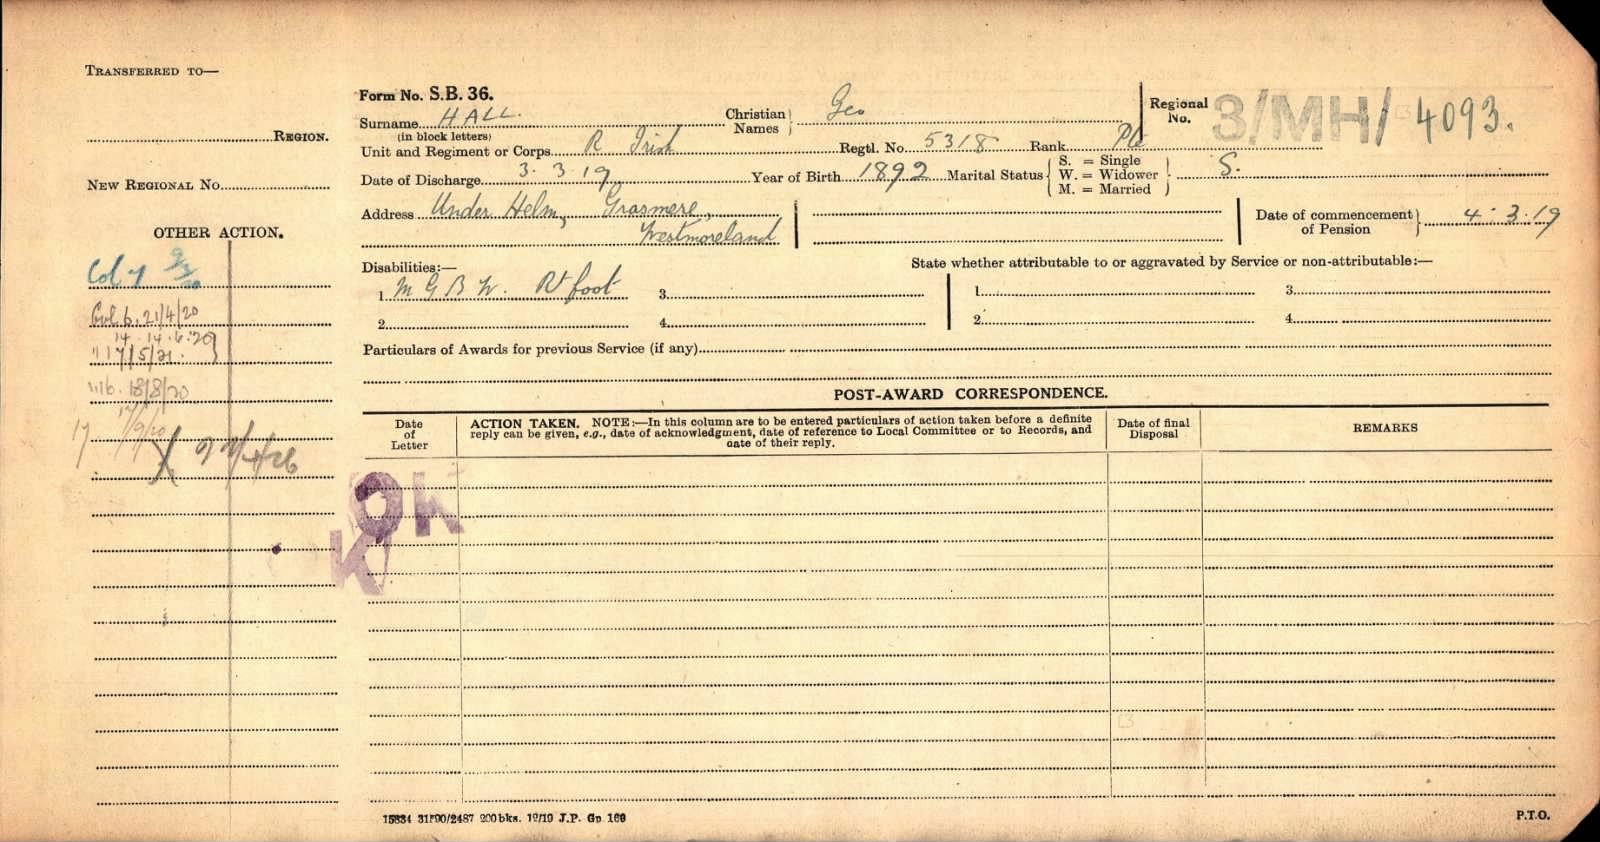 TRANSFERRED TO—
REGION.
NEW REGIONAL No.
OTHER ACTION.
Col 7
Col 6. 21/4/20
14 14.6.20
" 17/5/21.
"16. 18/8/20
17 17/9/20
Form No. S.B. 36.
Surname HALL. Christian Names Geo
(in block letters)
Regional No. 3/MH/ 4093.
Unit and Regiment or Corps R Irish Regtl. No. 5318 Rank Pte
Date of Discharge 3.3.19 Year of Birth 1892 Marital Status S. = Single W. = Widower M. = Married S.
Address Under Helm, Grasmere,
Westmoreland
Date of commencement of Pension 4.3.19
Disabilities:— State whether attributable to or aggravated by Service or non-attributable:—
1 M G B W. Rt foot 3. 1. 3.
2. 4. 2. 4.
Particulars of Awards for previous Service (if any)
POST-AWARD CORRESPONDENCE.
Date of Letter
ACTION TAKEN. NOTE:—In this column are to be entered particulars of action taken before a definite
reply can be given, e.g., date of acknowledgment, date of reference to Local Committee or to Records, and
date of their reply.
Date of final Disposal
REMARKS
OK
K
15834 31190/2487 200bks. 12/19 J.P. Gp 166
P.T.O.